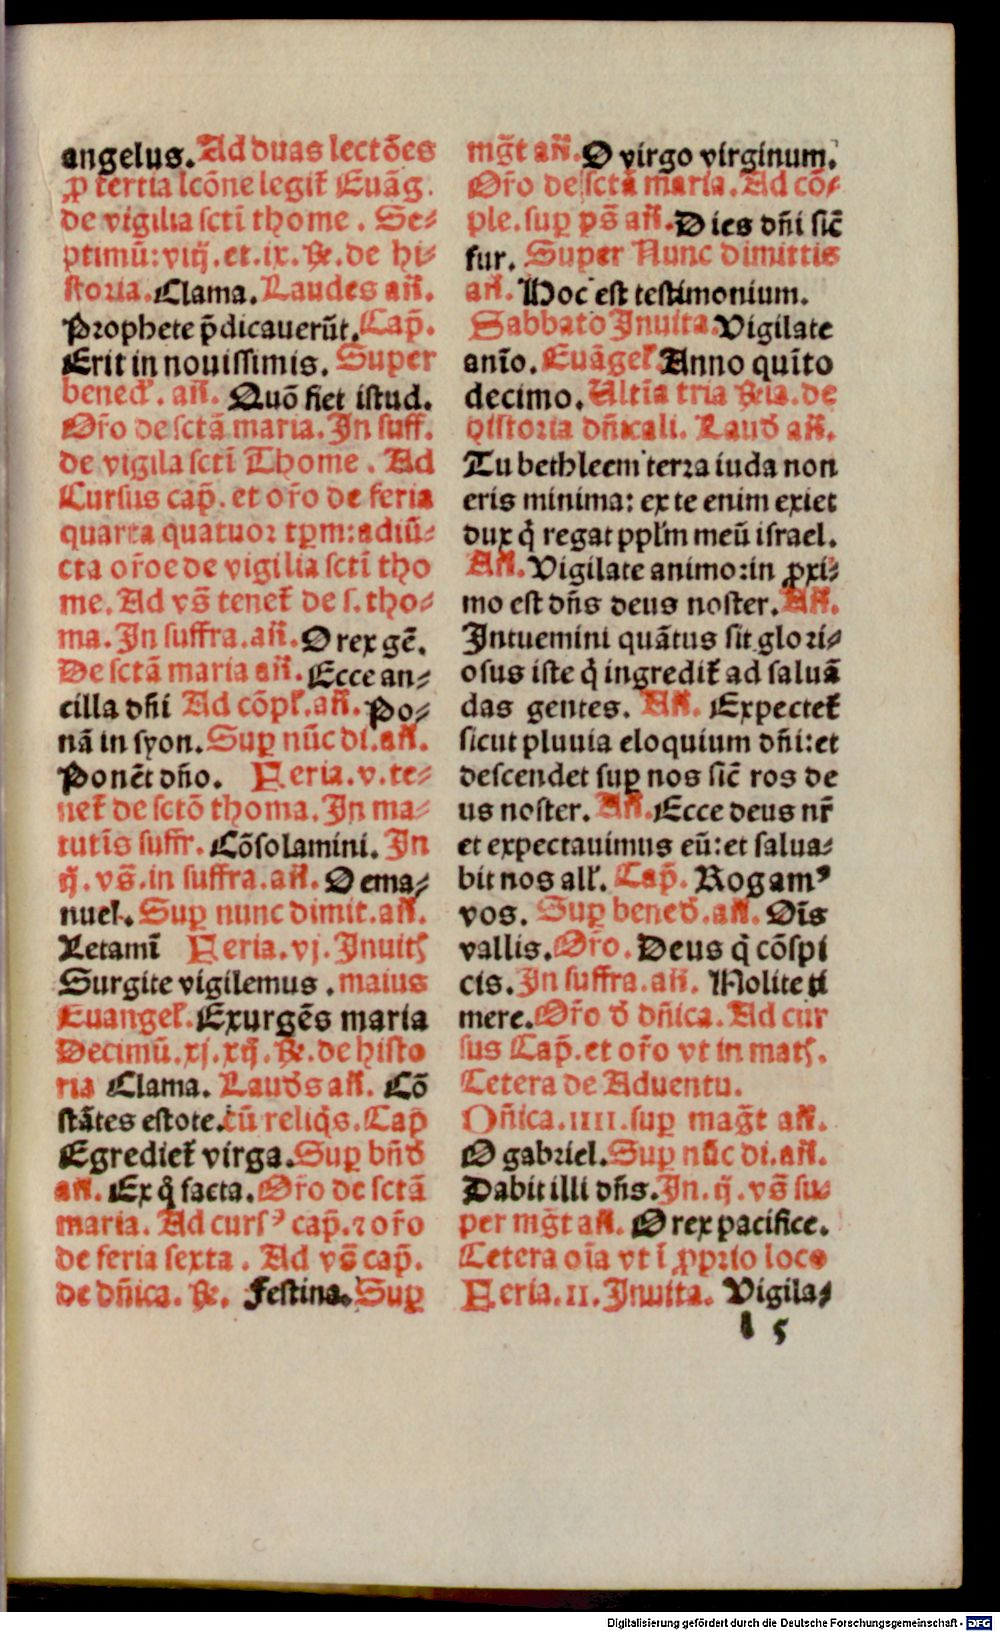 angelus. Ad duas lectões
ꝓ tertia lcõne legit̃ Euãg.
de vigilia scti thome. Se⸗
ptimũ: viij. et. ix. ℟. de hi⸗
storia. Clama. Laudes añ.
Prophete p̃dicauerũt. Cap̃.
Erit in nouissimis. Super
bened̃. añ. Quõ fiet istud.
Or̃o de sctã maria. In suff.
de vigila scti Thome. Ad
Cursus cap̃. et or̃o de feria
quarta quatuor tp̃m: adiũ⸗
cta or̃oe de vigilia scti tho
me. Ad vs̃ tenet̃ de s. tho⸗
ma. In suffra. añ. O rex gẽ.
De sctã maria añ. Ecce an⸗
cilla dñi Ad cõpl̃. añ. Po⸗
nã in syon. Suꝑ nũc di. añ.
Ponẽt dño. Feria. v. te⸗
net̃ de sctõ thoma. In ma⸗
tutĩs suffr. Cõsolamini. In
ij. vs̃. in suffra. añ. O ema⸗
nuel. Suꝑ nunc dimit. añ.
Letamĩ Feria. vj. Inuitꝭ
Surgite vigilemus. maius
Euangel̃. Exurgẽs maria
Decimũ. xj. xij. ℟. de histo
ria Clama. Laud̃s añ. Cõ
stãtes estote. cũ reliq̃s. Cap̃
Egrediet̃ virga. Suꝑ bñd̃
añ. Ex q̃ facta. Or̃o de sctã
maria. Ad cursꝰ cap̃. ⁊ or̃o
de feria sexta. Ad vs̃ cap̃.
de dñica. ℟. Festina. Suꝑ
mg̃t añ. O virgo virginum.
Or̃o de sctã maria. Ad cõ⸗
ple. suꝑ ps̃ añ. Dies dñi sic̃
fur. Super Nunc dimittis
añ. Hoc est testimonium.
Sabbato Inuita. Vigilate
anĩo. Euãgel̃. Anno quĩto
decimo. Ultĩa tria ℟ia. de
historia dñicali. Laud̃ añ.
Tu bethleem terra iuda non
eris minima: ex te enim exiet
dux q̃ regat ppl̃m meũ israel.
Añ. Vigilate animo: in ꝓxi⸗
mo est dñs deus noster. Añ.
Intuemini quãtus sit glori⸗
osus iste q̃ ingredit̃ ad saluã
das gentes. Añ. Expectet̃
sicut pluuia eloquium dñi: et
descendet suꝑ nos sic̃ ros de
us noster. Añ. Ecce deus nr̃
et expectauimus eũ: et salua⸗
bit nos all̃. Cap̃. Rogamꝰ
vos. Suꝑ bened̃. añ. Oĩs
vallis. Or̃o. Deus q̃ cõspi
cis. In suffra. añ. Nolite ti
mere. Or̃o d̃ dñica. Ad cur
sus Cap̃. et or̃o vt in matꝭ.
Cetera de Aduentu.
Dñica. IIII. suꝑ mag̃t añ.
O gabriel. Suꝑ nũc di. añ.
Dabit illi dñs. In. ij. vs̃ su⸗
per mg̃t añ. O rex pacifice.
Cetera oĩa vt ĩ ꝓprio loco
Feria. II. Inuita. Vigila⸗
l 5
Digitalisierung gefördert durch die Deutsche Forschungsgemeinschaft - DFG